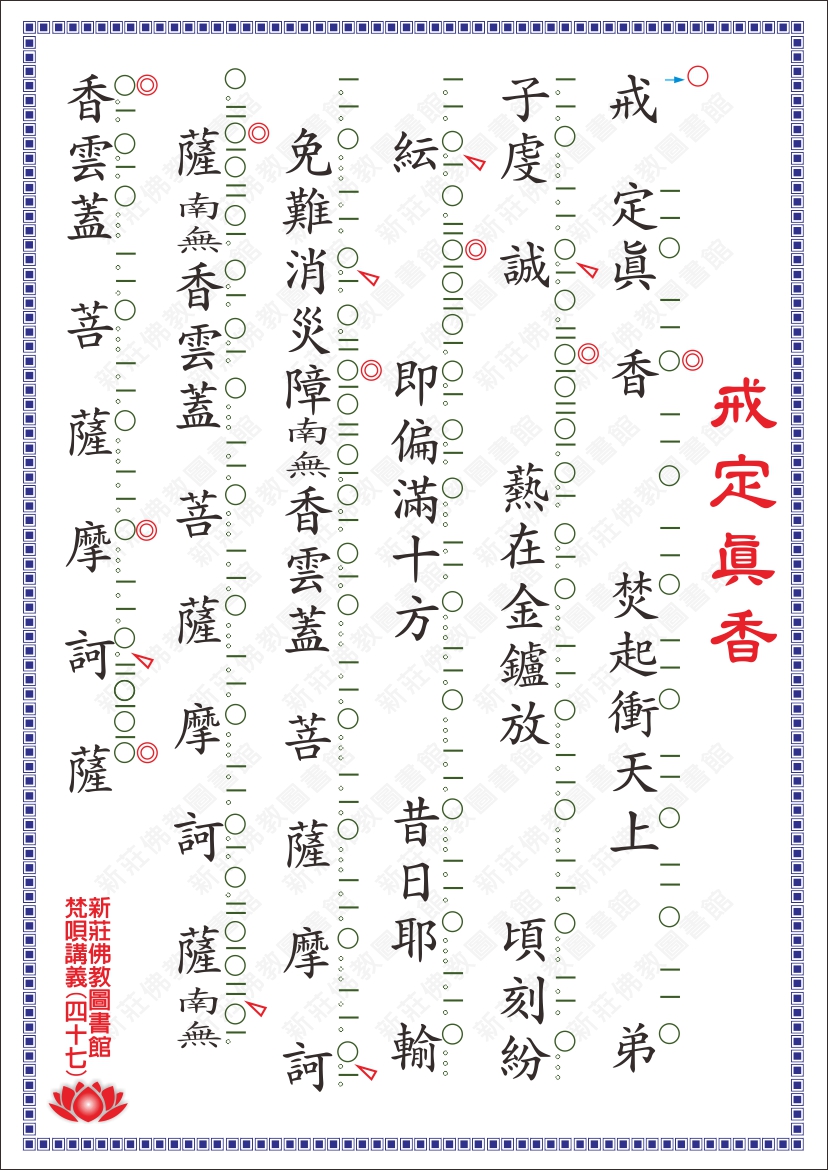 戒定眞香
戒定眞香焚起衝天上弟
子虔誠爇在金鑪放頃刻紛
紜即徧滿十方昔日耶輸
免難消災障南無香雲蓋菩薩摩訶
薩南無香雲蓋菩薩摩訶薩南無
香雲蓋菩薩摩訶薩
新莊佛教圖書館
梵唄講義(四十七)